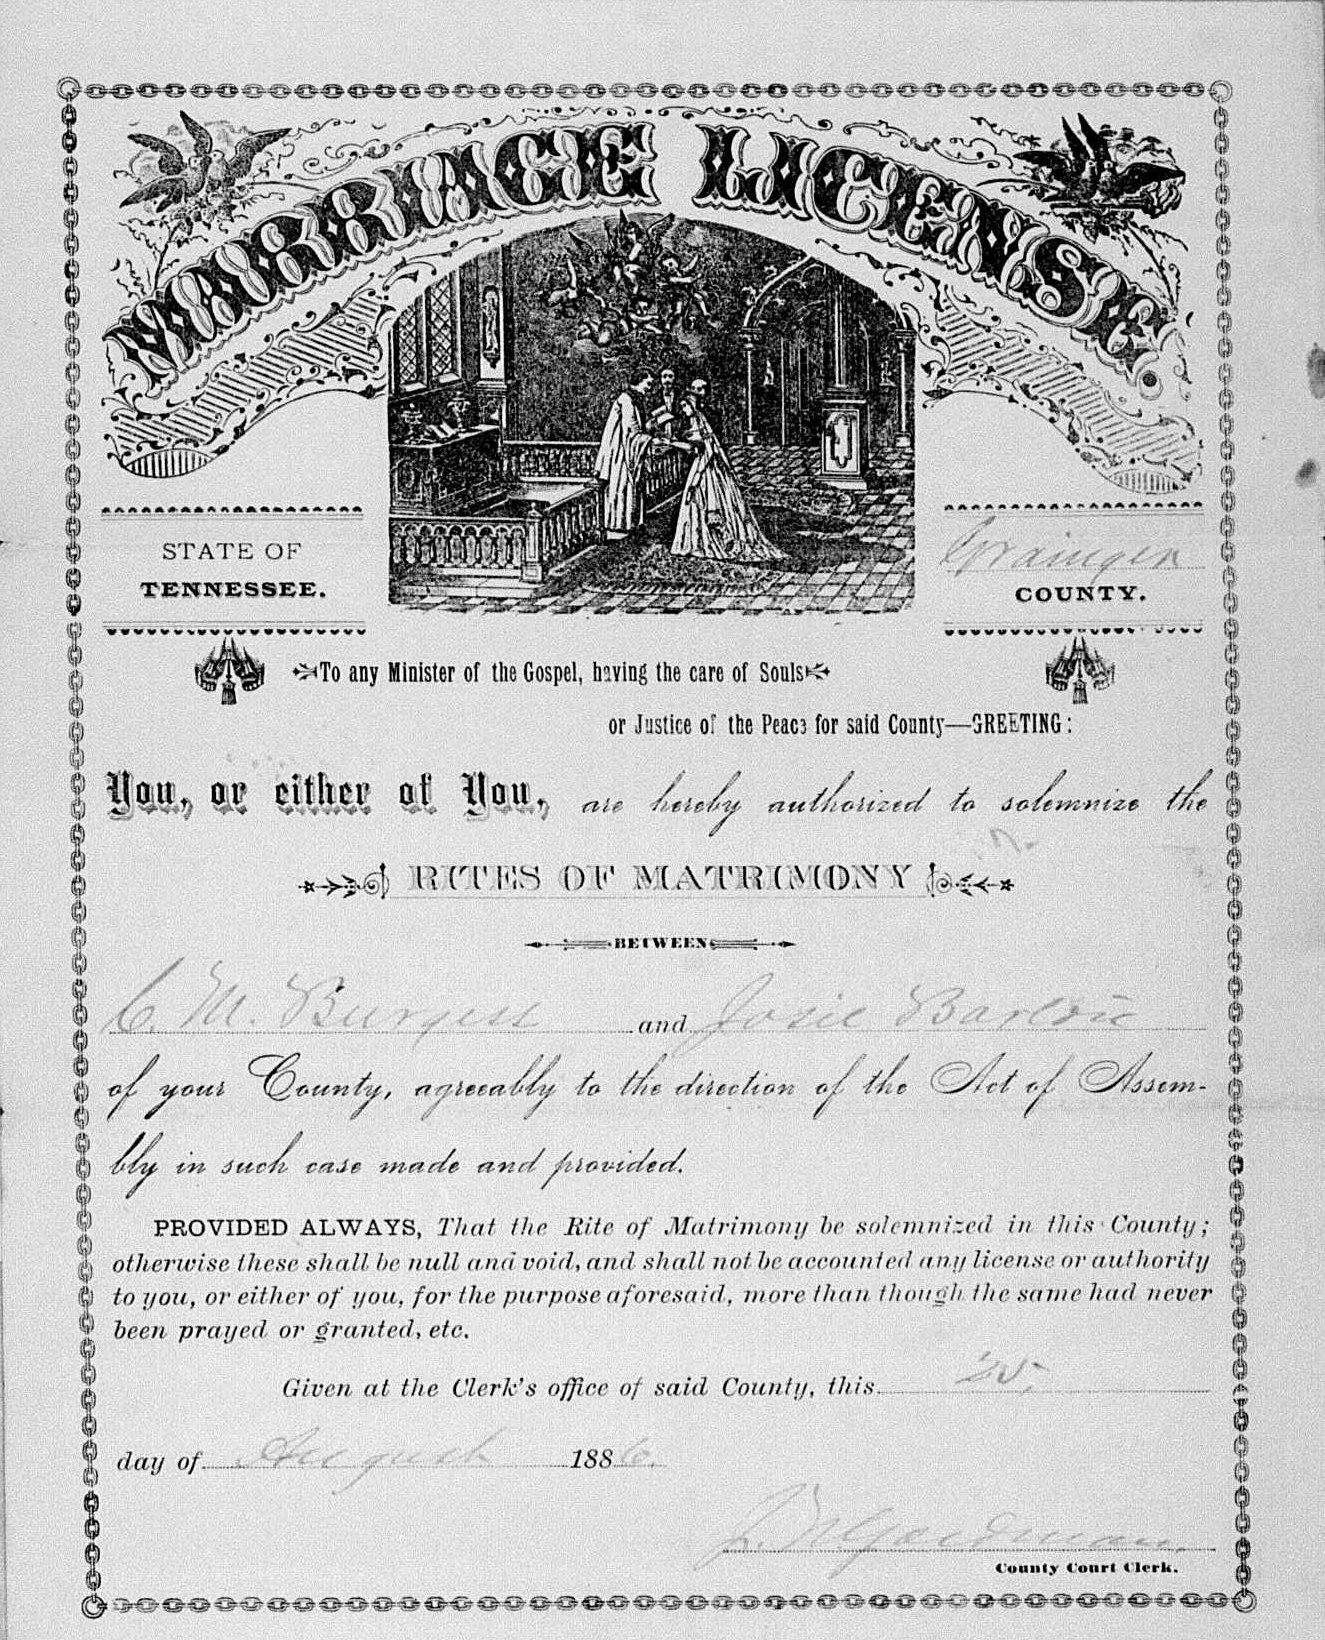 MARRIAGE LICENSE.
STATE OF
TENNESSEE.
Grainger
COUNTY.
To any Minister of the Gospel, having the care of Souls
or Justice of the Peace for said County—GREETING:
You, or either of You, are hereby authorized to solemnize the
RITES OF MATRIMONY
BETWEEN
C. M. Burgess and Josie
of your County, agreeably to the direction of the Act of Assem-
bly in such case made and provided.
PROVIDED ALWAYS, That the Rite of Matrimony be solemnized in this County;
otherwise these shall be null and void, and shall not be accounted any license or authority
to you, or either of you, for the purpose aforesaid, more than though the same had never
been prayed or granted, etc.
Given at the Clerk's office of said County, this 25,
day of August 1886.
Goodman.
County Court Clerk.